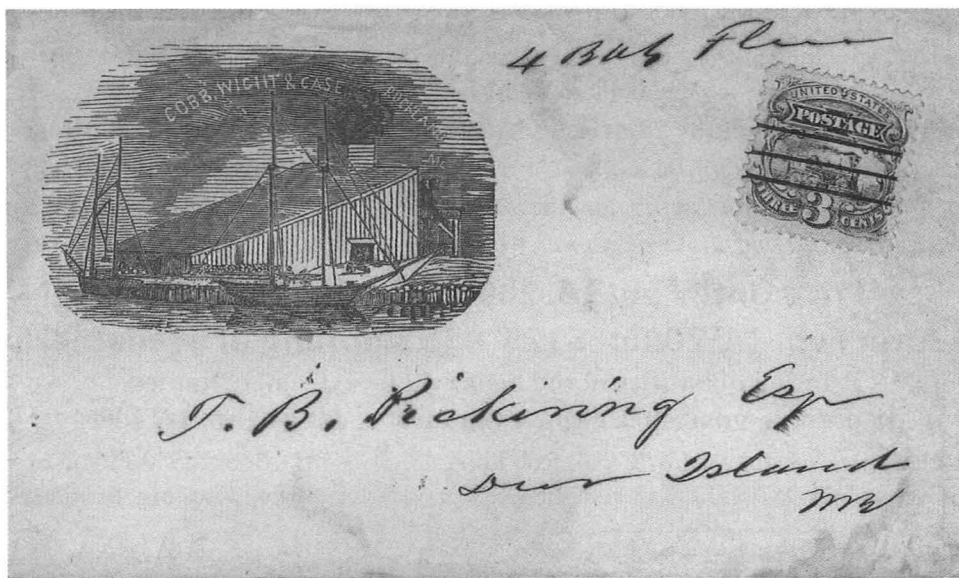 COBB, WIGHT & CASE
ROCKLAND
ME.
4 Bbls Flour
UNITED STATES
POSTAGE
THREE 3 CENTS
T. B. Pickiring Esq
Deer Island
Me